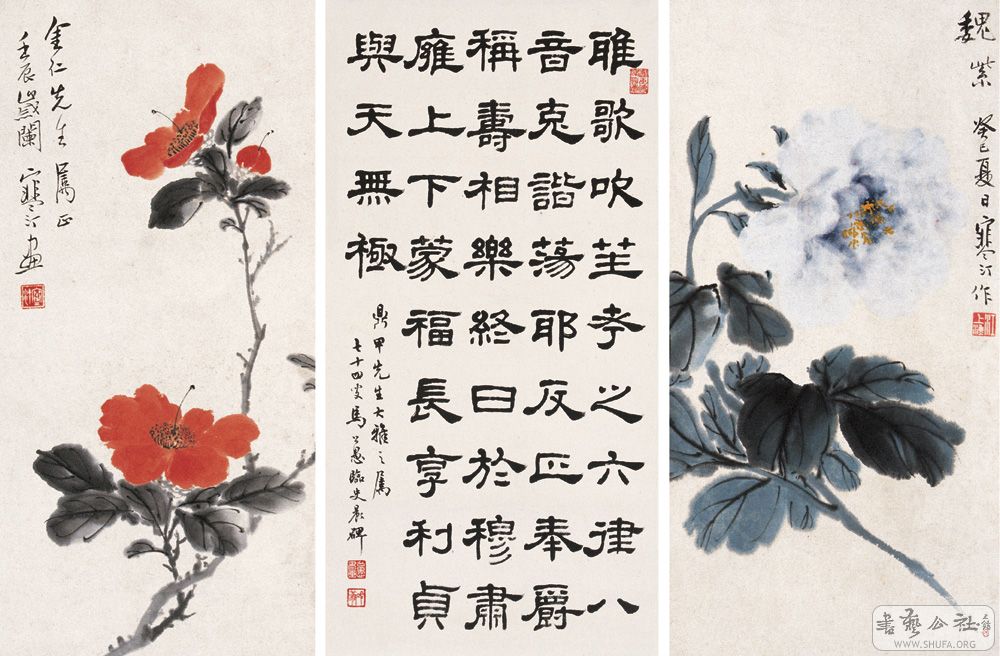 金仁先生屬正
壬辰歲闌寒汀畫
雅歌吹笙考之六律八
音克諧蕩耶反正奉爵
稱壽相樂終日於穆肅
廱上下蒙福長享利貞
與天無極
鼎甲先生大雅之屬
七十四叟馬公愚臨史晨碑
魏紫 癸巳夏日寒汀作
書藝公社
WWW.SHUFA.ORG